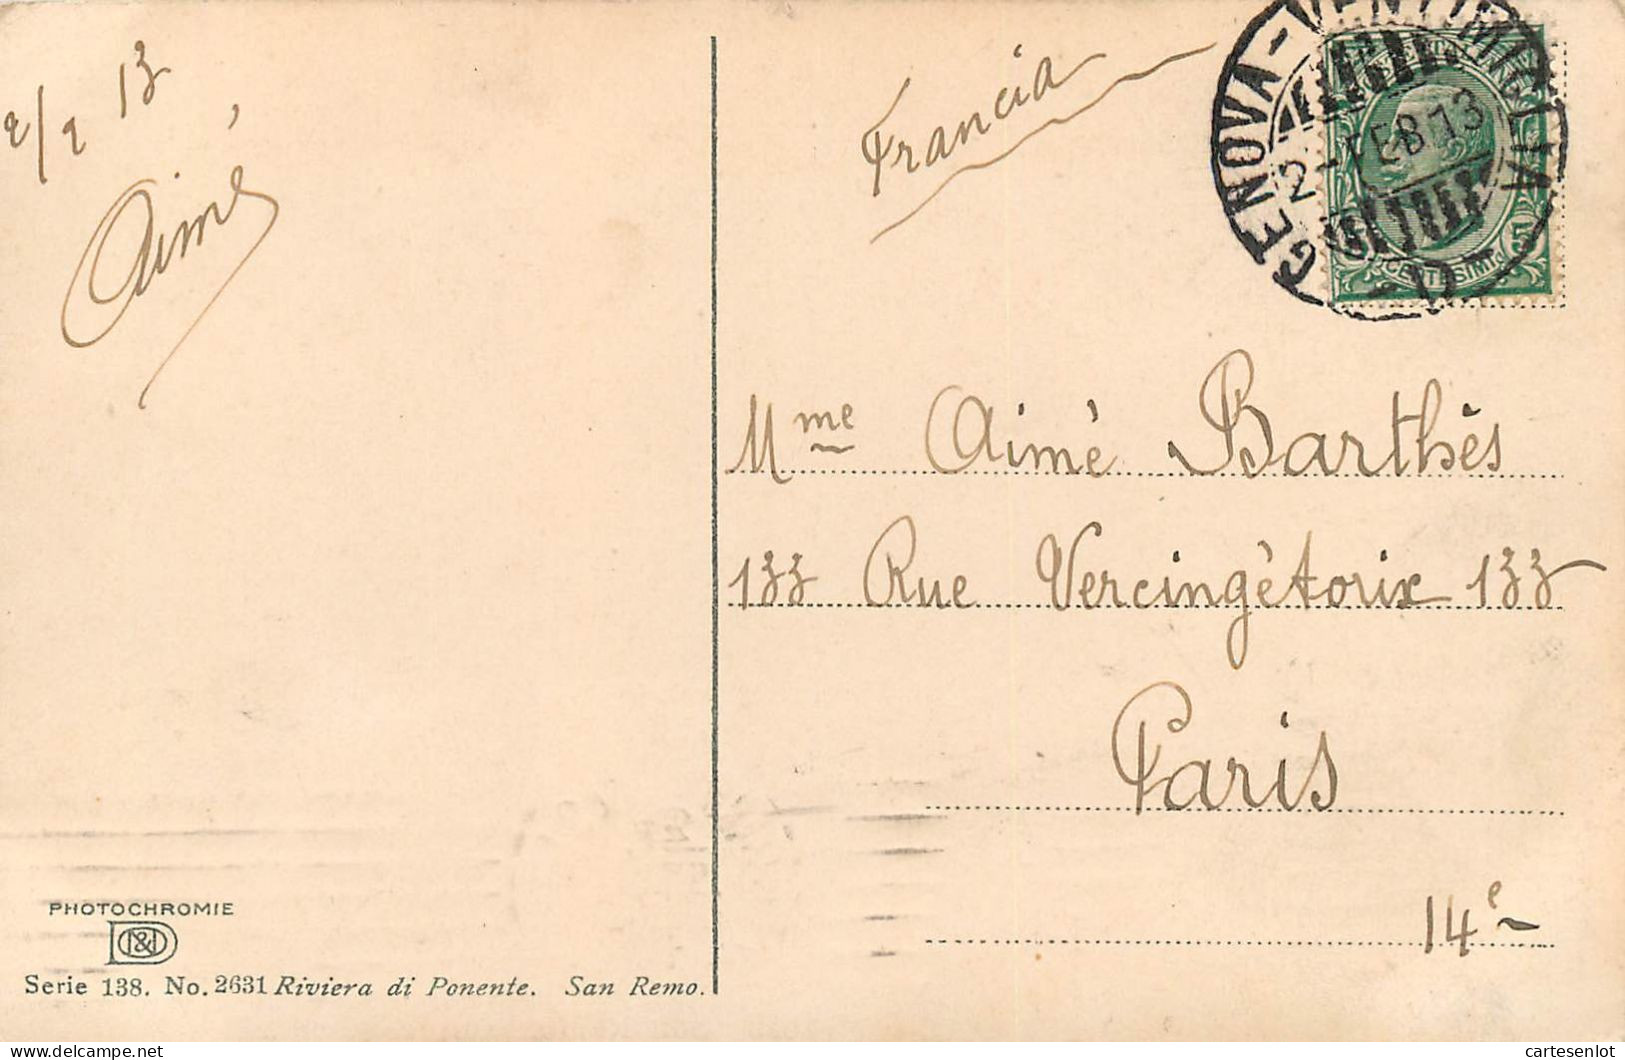 2/2 13
Aimé
Francia
GENOVA-VENTIMIGLIA
2-FEB 13
5
CENTESIMI
Mme Aimé Barthès
133 Rue Vercingétorix 133
Paris
14e
PHOTOCHROMIE
Serie 138. No. 2631 Riviera di Ponente. San Remo.
cartesenlot